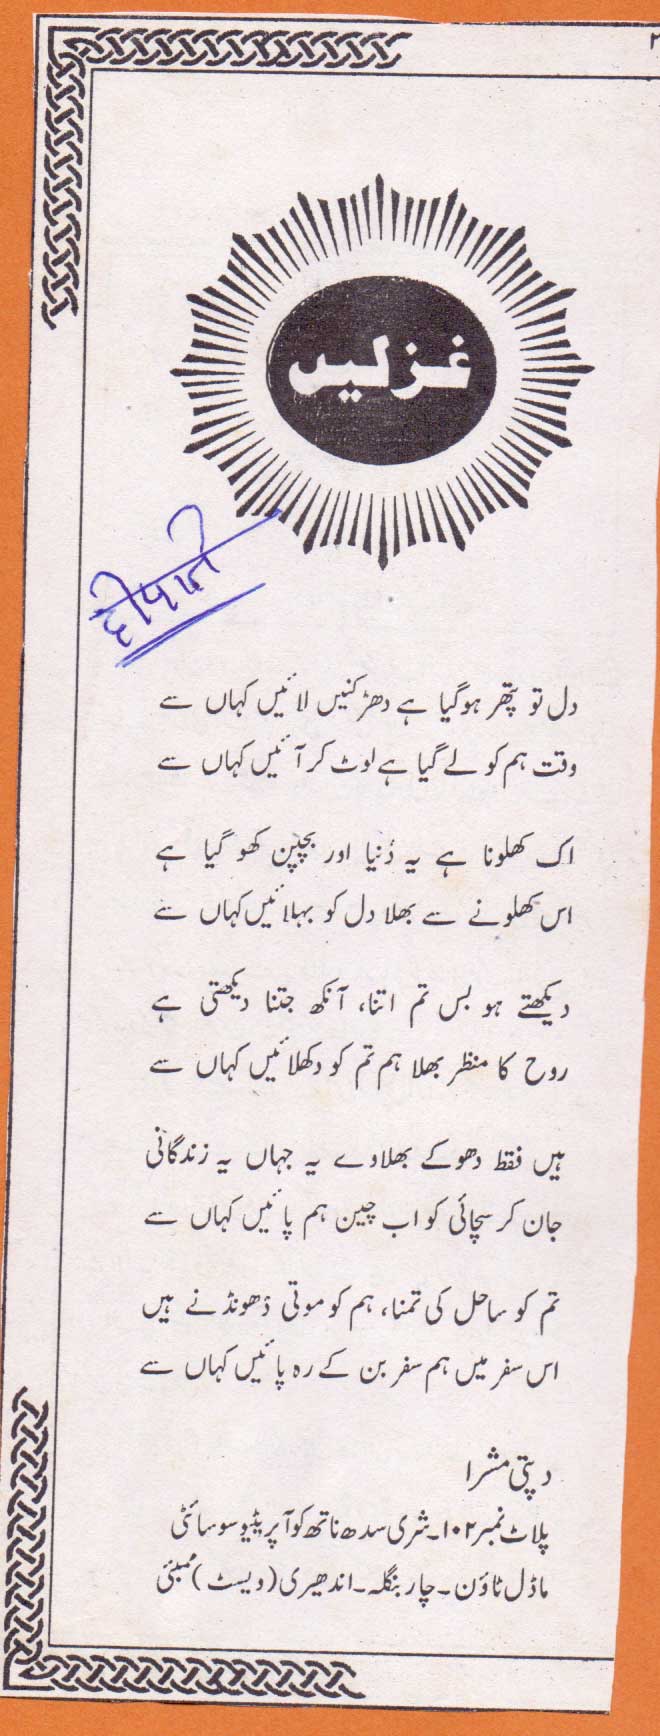 ۲
غزلیں
दीपजी
دل تو پتھر ہوگیا ہے دھڑکنیں لائیں کہاں سے
وقت ہم کو لے گیا ہے لوٹ کر آئیں کہاں سے
اک کھلونا ہے یہ دُنیا اور بچپن کھو گیا ہے
اس کھلونے سے بھلا دل کو بہلائیں کہاں سے
دیکھتے ہو بس تم اتنا، آنکھ جتنا دیکھتی ہے
روح کا منظر بھلا ہم تم کو دکھلائیں کہاں سے
ہیں فقط دھوکے بھلاوے یہ جہاں یہ زندگانی
جان کر سچائی کو اب چین ہم پائیں کہاں سے
تم کو ساحل کی تمنا، ہم کو موتی ڈھونڈنے ہیں
اس سفر میں ہم سفر بن کے رہ پائیں کہاں سے
دپتی مشرا
پلاٹ نمبر ۱۰۲۔ شری سدھ ناتھ کوآپریٹیو سوسائٹی
ماڈل ٹاؤن۔ چار بنگلہ۔ اندھیری (ویسٹ) ممبئی